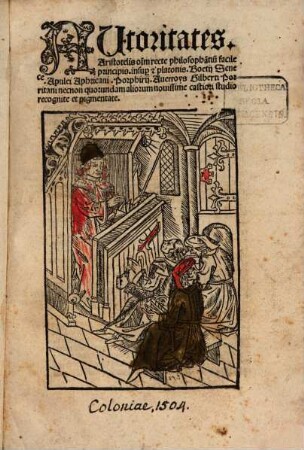 AUtoritates.
Aristotelis oīm recte philosophātiū facile
principis. insup ⁊ platonis. Boetij Sene
ce. Apulei Aphricani. Porphirij. Auerroys Gilberti Por
ritani necnon quorundam aliorum nouissime castiori studio
recognite et pigmentate.
BLIOTHECA
REGIA
ENSIS.
Coloniae, 1504.